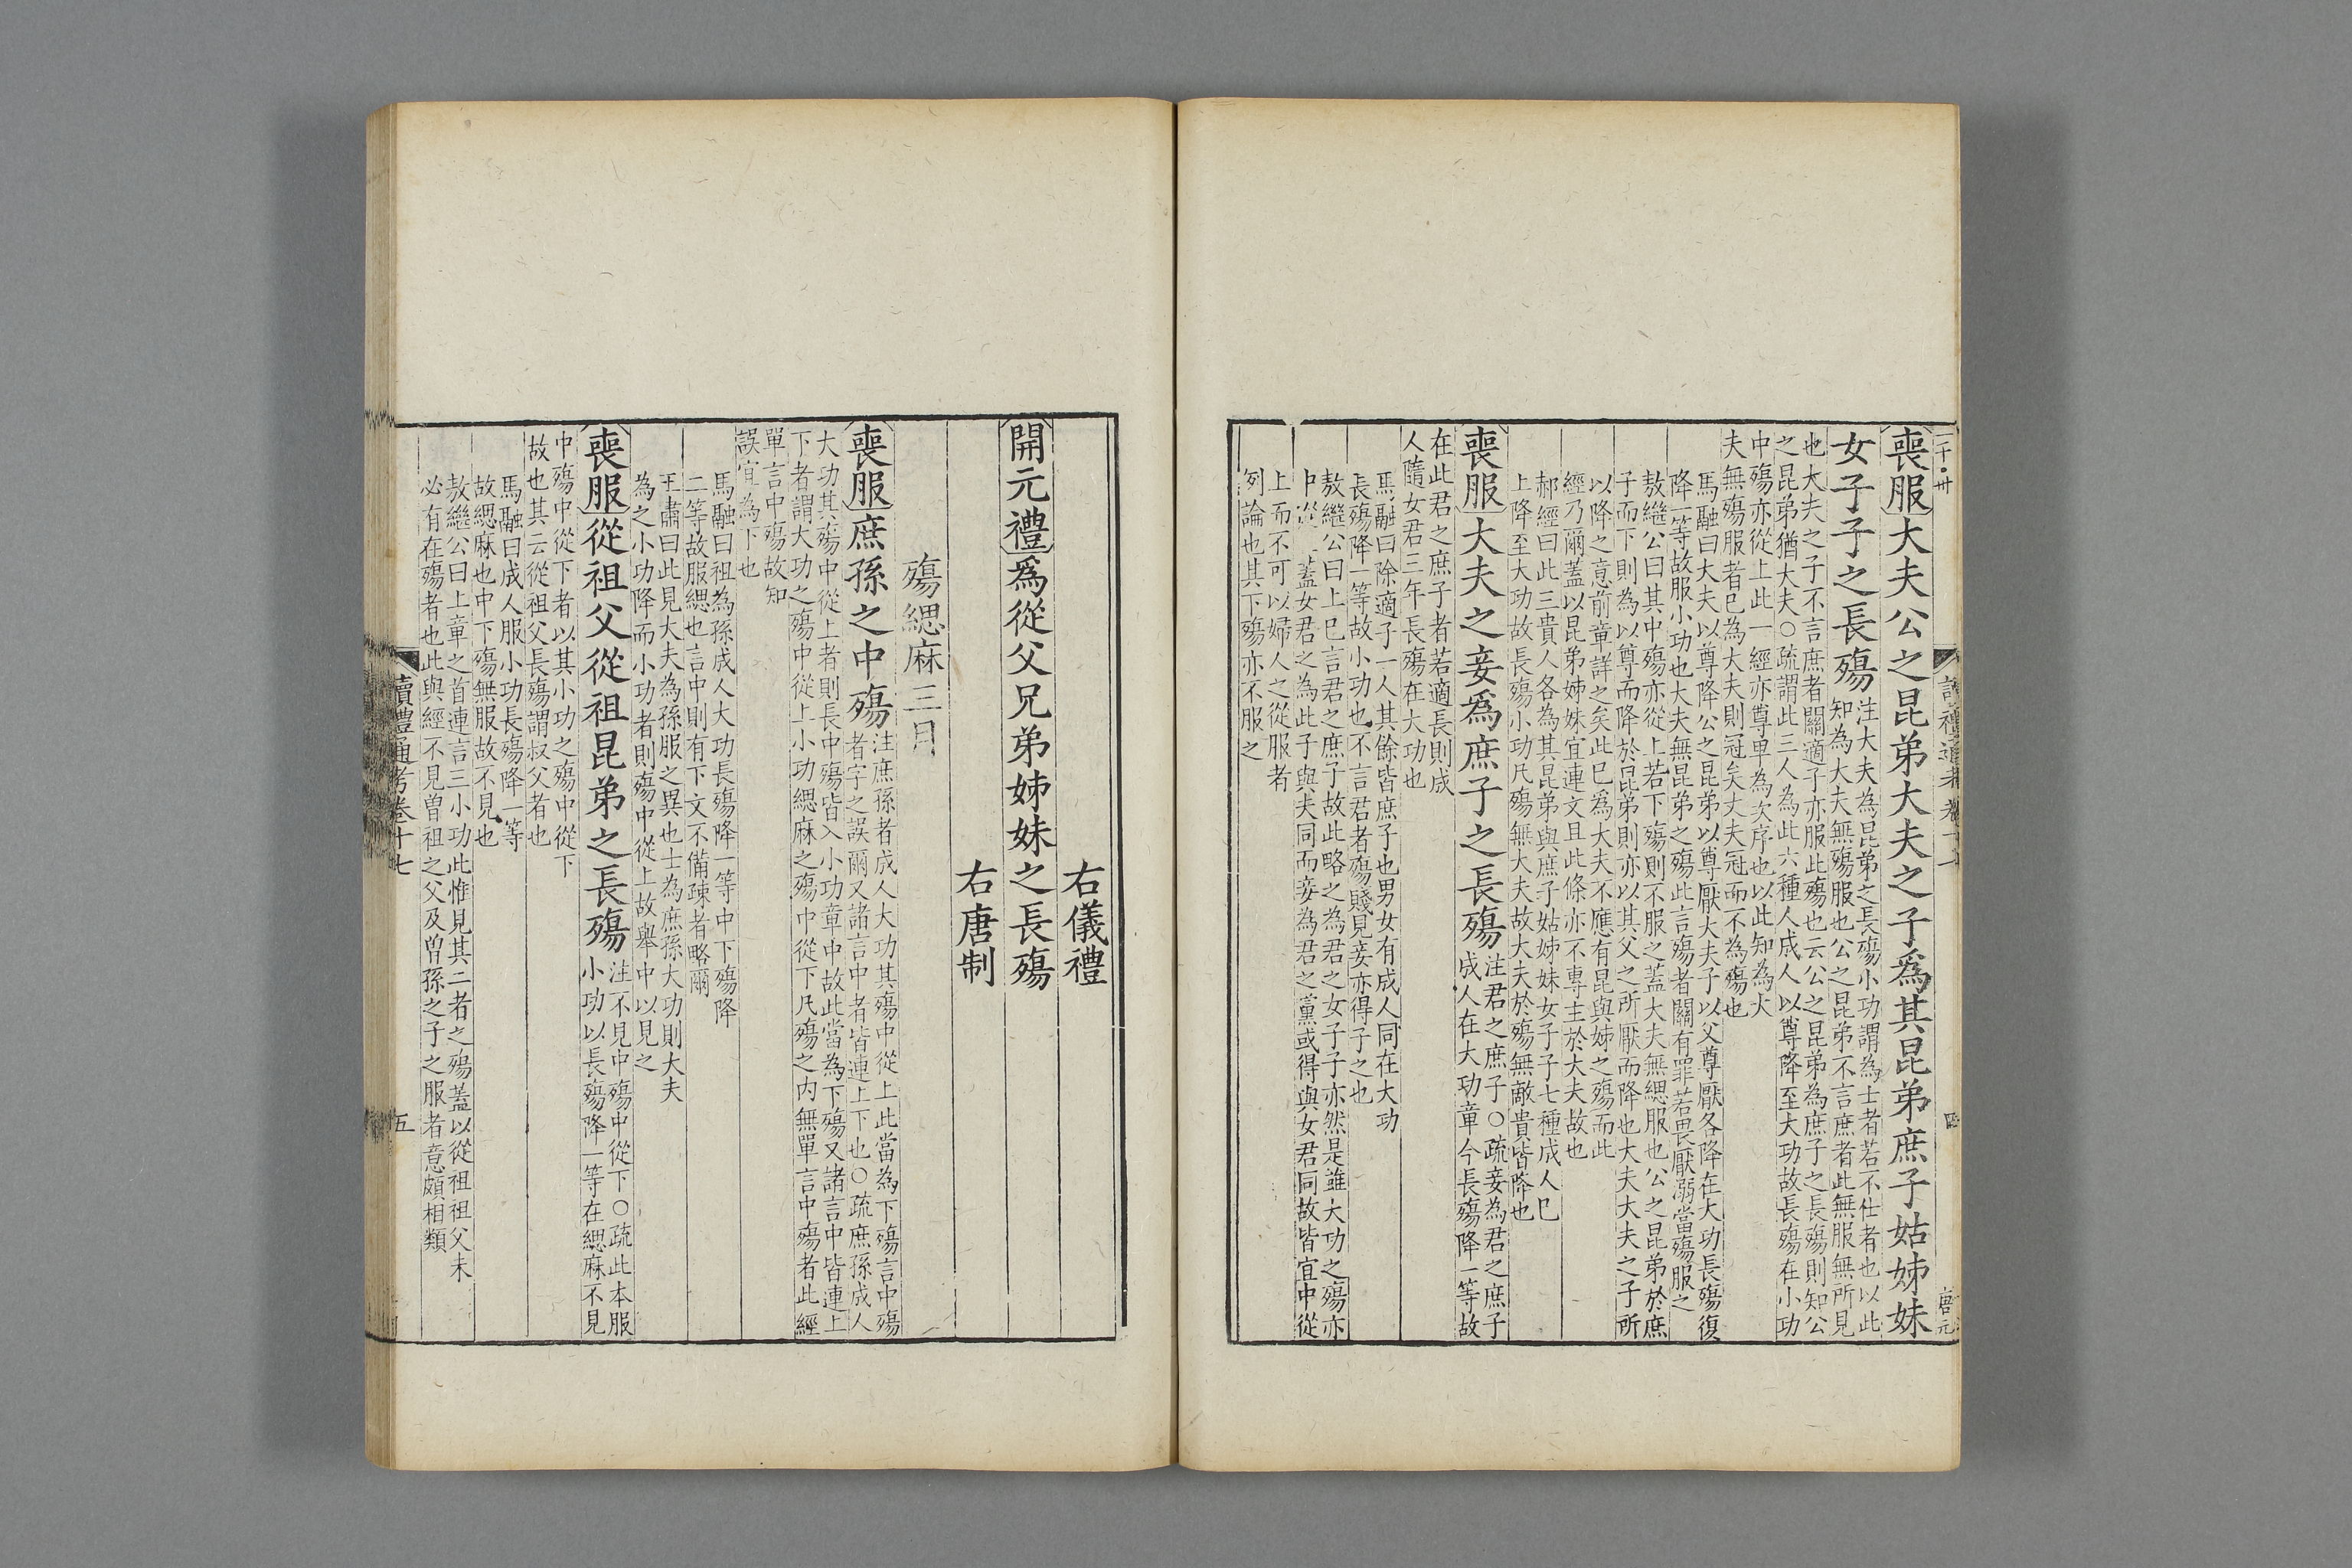 喪服大夫公之昆弟大夫之子爲其昆弟庶子姑姊妹
女子子之長殤
注大夫為昆弟之長殤小功謂為士者若不仕者也以此
知為大夫無殤服也公之昆弟不言庶者此無服無所見
也大夫之子不言庶者關適子亦服此殤也云公之昆弟為庶子之長殤則知公
之昆弟猶大夫○疏謂此三人為此六種人成人以尊降至大功故長殤在小功
中殤亦從上此一經亦尊卑為次序也以此知為大
夫無殤服者已為大夫則冠矣丈夫冠而不為殤也
馬融曰大夫以尊降公之昆弟以尊厭大夫子以父尊厭各降在大功長殤復
降一等故服小功也大夫無昆弟之殤此言殤者關有罪若畏厭溺當殤服之
敖繼公曰其中殤亦從上若下殤則不服之蓋大夫無緦服也公之昆弟於庶
子而下則為以尊而降於昆弟則亦以其父之所厭而降也大夫大夫之子所
以降之意前章詳之矣此巳爲大夫不應有昆與姊之殤而此
經乃爾蓋以昆弟姊妹宜連文且此條亦不專主於大夫故也
郝經曰此三貴人各為其昆弟與庶子姑姊妹女子子七種成人巳
上降至大功故長殤小功凡殤無大夫故大夫於殤無敵貴皆降也
喪服大夫之妾爲庶子之長殤
注君之庶子○疏妾為君之庶子
成人在大功章今長殤降一等故
在此君之庶子者若適長則成
人隨女君三年長殤在大功也
馬融曰除適子一人其餘皆庶子也男女有成人同在大功
長殤降一等故小功也不言君者殤賤見妾亦得子之也
敖繼公曰上巳言君之庶子故此略之為君之女子子亦然是雖大功之殤亦
中從 蓋女君之為此子與夫同而妾為君之黨或得與女君同故皆宜中從
上而不可以婦人之從服者
例論也其下殤亦不服之
右儀禮
開元禮爲從父兄弟姊妹之長殤
右唐制
殤緦麻三月
喪服庶孫之中殤
注庶孫者成人大功其殤中從上此當為下殤言中殤
者字之誤爾又諸言中者皆連上下也○疏庶孫成人
大功其殤中從上者則長中殤皆入小功章中故此當為下殤又諸言中皆連上
下者謂大功之殤中從上小功緦麻之殤中從下凡殤之內無單言中殤者此經
單言中殤故知
誤宜為下也
馬融曰祖為孫成人大功長殤降一等中下殤降
二等故服緦也言中則有下文不備疎者略爾
王肅曰此見大夫為孫服之異也士為庶孫大功則大夫
為之小功降而小功者則殤中從上故舉中以見之
喪服從祖父從祖昆弟之長殤
注不見中殤中從下○疏此本服
小功以長殤降一等在緦麻不見
中殤中從下者以其小功之殤中從下
故也其云從祖父長殤謂叔父者也
馬融曰成人服小功長殤降一等
故緦麻也中下殤無服故不見也
敖繼公曰上章之首連言三小功此惟見其二者之殤蓋以從祖祖父未
必有在殤者也此與經不見曾祖之父及曾孫之子之服者意頗相類
讀禮通考卷十七
五